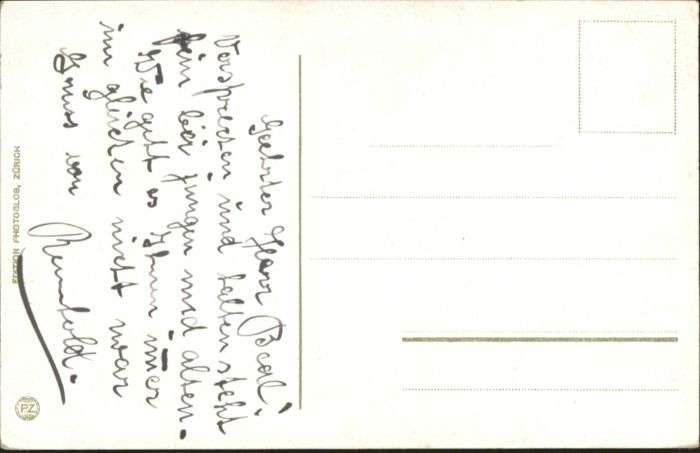 Geehrter Herr Beak!
Versprechen und halten steht
fein bei jungen und alten.
Wie geht es Ihnen imer
im glücken nicht war
Gruss von
Reinhold.
EDITION PHOTOGLOB, ZÜRICH
PZ